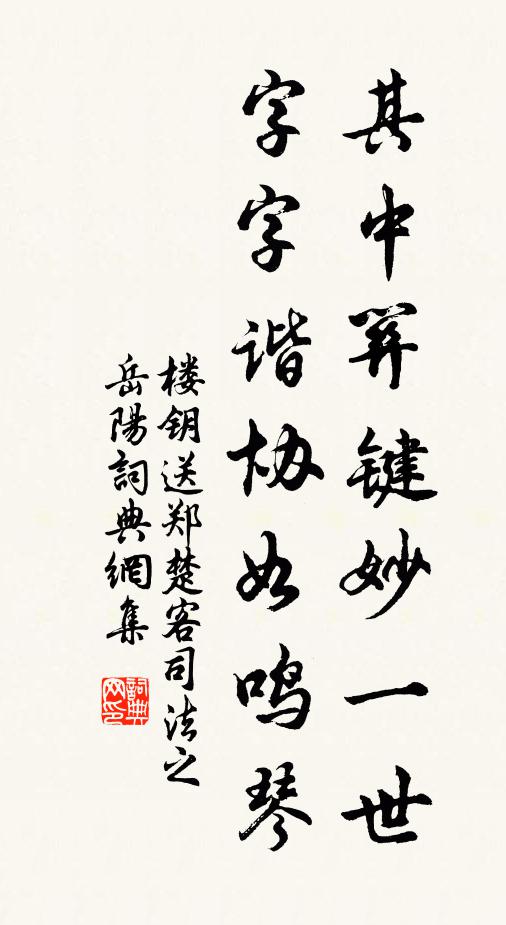 其中关键妙一世
字字谐协如鸣琴
楼钥送郑楚客司法之
岳陽詞典網集
詞典
网印